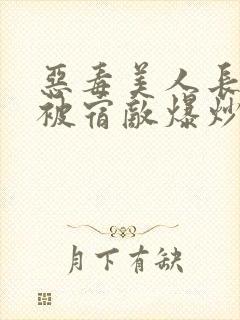 惡毒美人長
被宿敵爆炒
月下有缺